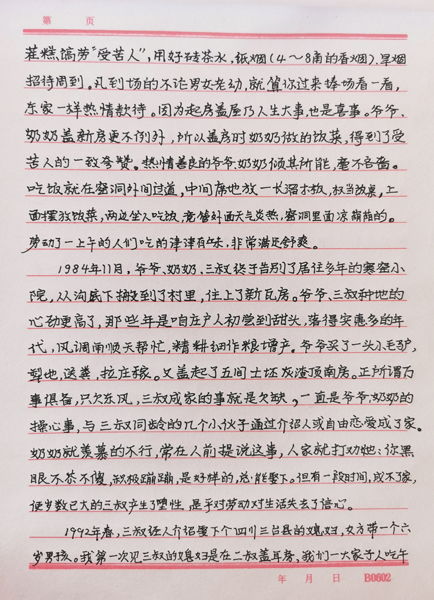 第 页
糕犒劳“受苦人”,用好砖茶水,纸烟(4～8角的香烟),旱烟
招待周到。凡到场的不论男女老幼,就算你过来捧场看一看,
东家一样热情款待。因为起房盖屋乃人生大事,也是喜事。爷爷、
奶奶盖新房更不例外,所以盖房时奶奶做的饭菜,得到了受
苦人的一致夸赞。热情善良的爷爷、奶奶倾其所能,毫不吝啬。
吃饭就在窑洞外间过道,中间席地放一长溜木板,权当饭桌,上
面摆放饭菜,两边坐人吃饭,竟管外面天气炎热,窑洞里面凉荫荫的。
劳动了一上午的人们吃的津津有味,非常满足舒爽。
1984年11月,爷爷、奶奶、三叔终于告别了居住多年的寒窑小
院,从沟底下搬到了村里,住上了新瓦房。爷爷、三叔种地的
心劲更高了,那些年是咱庄户人初尝到甜头,落得实惠多的年
代,风调雨顺天帮忙,精耕细作粮增产。爷爷买了一头小毛驴,
犁地,送粪,拉庄稼。又盖起了五间土坯灰渣顶南房。正所谓万
事俱备,只欠东风,三叔成家的事就是欠缺,一直是爷爷、奶奶的
操心事,与三叔同龄的几个小伙子通过介绍人或自由恋爱成了家。
奶奶就羡慕的不行,常在人前提说这事,人家就打劝她:你黑
眼不茶不傻,积极蹦蹦,是好样的,总能娶下。但有一段时间,成不了家,
使岁数已大的三叔产生了惰性,甚乎对劳动对生活失去了信心。
1992年春,三叔经人介绍娶下个四川三台县的媳妇,女方带一个六
岁男孩。我第一次见三叔的媳妇是在二叔盖耳房,我们一大家子人吃午
年 月 日 B0602